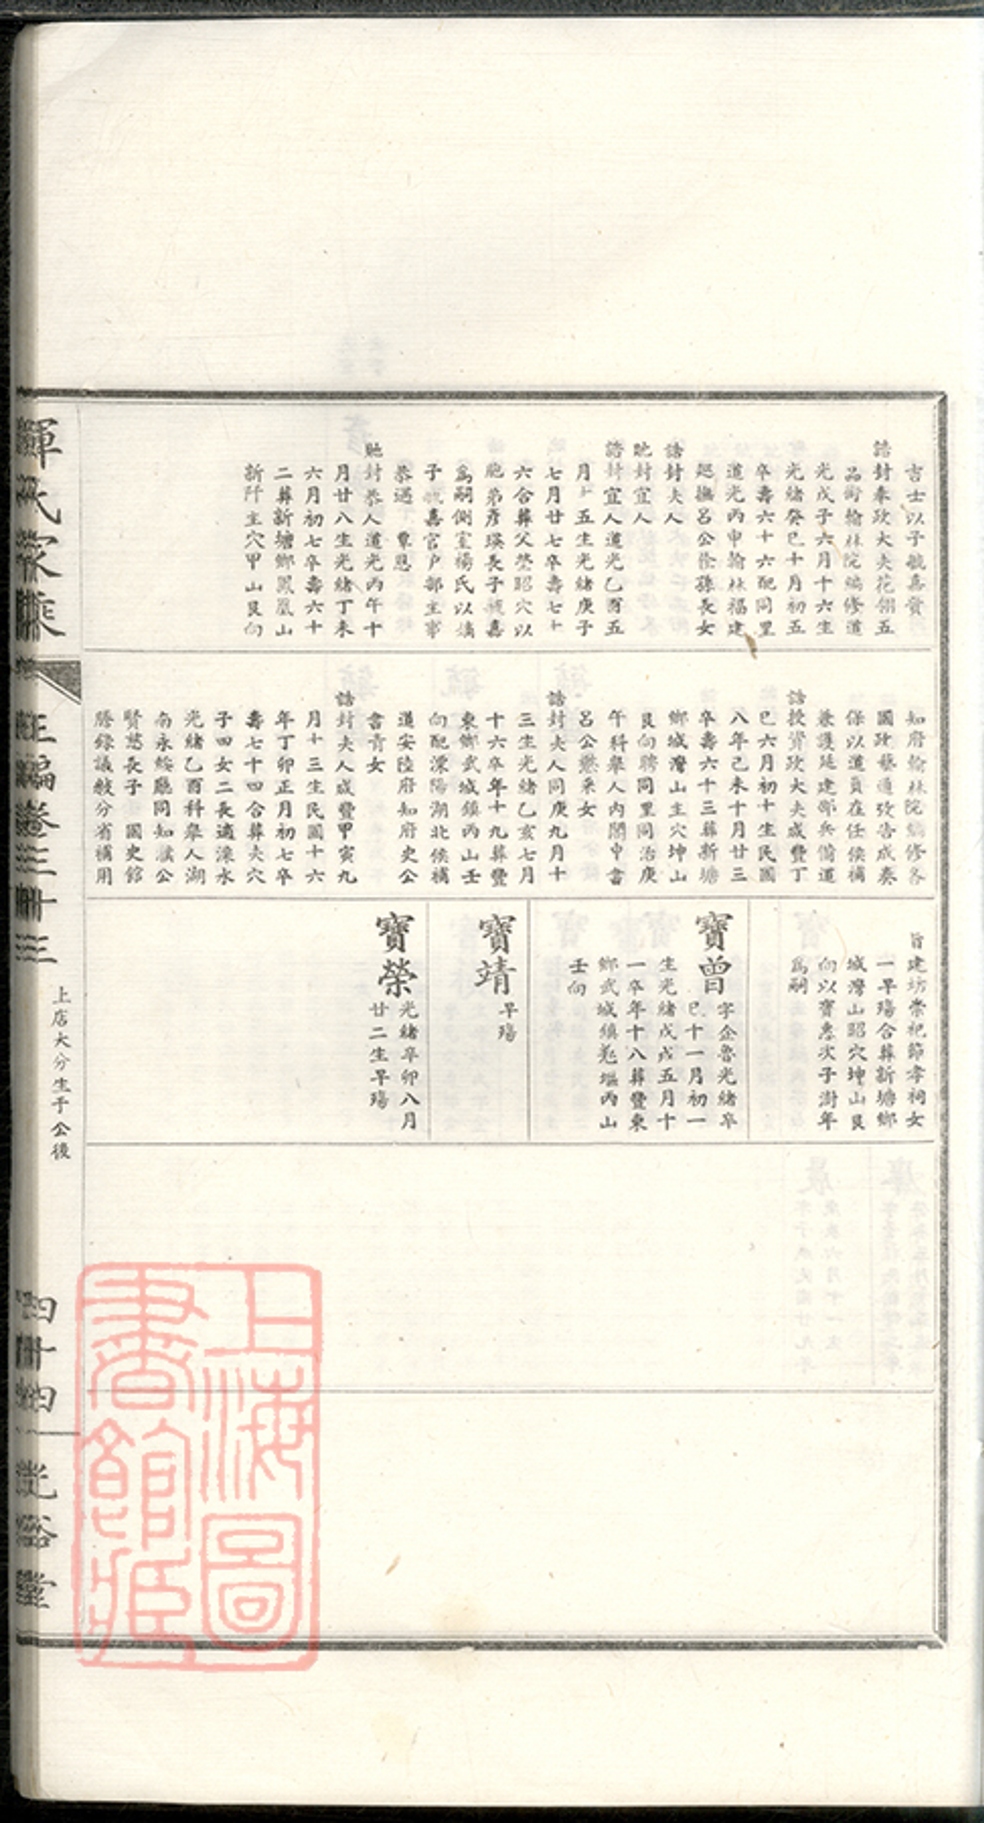 吉士以子毓嘉貴
誥封奉政大夫花翎五
品銜翰林院編修道
光戊子六月十六生
光緒癸巳十月初五
卒壽六十六配同里
道光丙申翰林福建
巡撫呂公佺孫長女
誥封夫人
貤封宜人
誥封宜人道光乙酉五
月十五生光緒庚子
七月廿七卒壽七十
六合葬父塋昭穴以
胞弟彥瑛長子毓嘉
爲嗣側室楊氏以嗣
子毓嘉官戶部主事
恭遇覃恩
貤封恭人道光丙午十
月廿八生光緒丁未
六月初七卒壽六十
二葬新塘鄉鳳凰山
新阡主穴甲山艮向
知府翰林院編修各
國政藝通攷告成奏
保以道員在任候補
兼護延建邵兵備道
誥授資政大夫咸豐丁
巳六月初十生民國
八年己未十月廿三
卒壽六十三葬新塘
鄉城灣山主穴坤山
艮向聘同里同治庚
午科舉人內閣中書
呂公懋采女
誥封夫人同庚九月十
三生光緒乙亥七月
十六卒年十九葬豐
東鄉武城鎮丙山壬
向配溧陽湖北候補
道安陸府知府史公
書青女
誥封夫人咸豐甲寅九
月十三生民國十六
年丁卯正月初七卒
壽七十四合葬夫穴
子四女二長適溧水
光緒乙酉科舉人湖
南永綏廳同知濮公
賢慈長子國史館
謄錄議敘分省補用
旨建坊崇祀節孝祠女
一早殤合葬新塘鄉
城灣山昭穴坤山艮
向以寶惠次子澍年
爲嗣
寶曾
字企魯光緒辛
巳十一月初一
生光緒戊戌五月十
一卒年十八葬豐東
鄉武城鎮彪墟丙山
壬向
寶靖
早殤
寶榮
光緒辛卯八月
廿二生早殤
惲氏家乘
正編卷三十三
上店大分生于公後
四十四
光裕堂
上海圖
書館藏